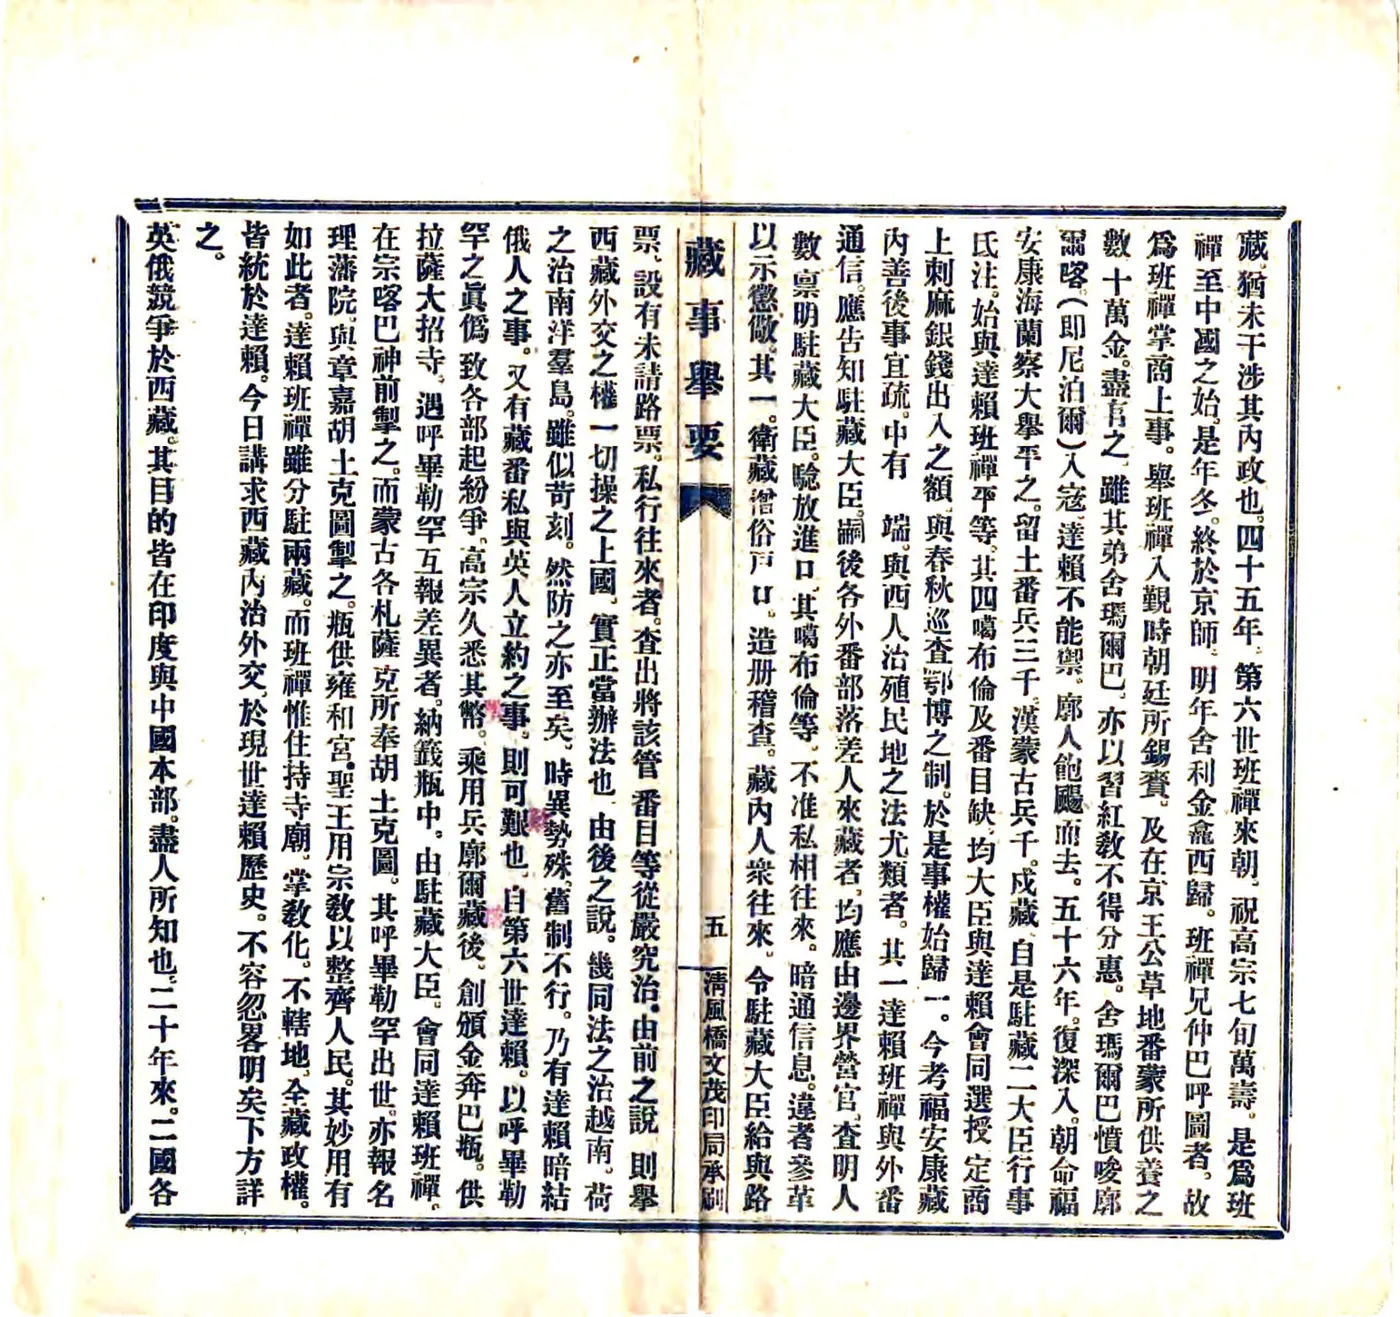 藏、猶未干涉其內政也。四十五年、第六世班禪來朝、祝高宗七旬萬壽。是爲班
禪至中國之始。是年冬。終於京師。明年舍利金龕西歸。班禪兄仲巴呼圖者。故
爲班禪掌商上事。舉班禪入覲時朝廷所錫賚。及在京王公草地番蒙所供養之
數十萬金。盡有之、雖其弟舍瑪爾巴、亦以習紅敎不得分惠。舍瑪爾巴憤唆廓
爾喀（即尼泊爾）入寇、達賴不能禦。廓人飽颺而去。五十六年。復深入。朝命福
安康海蘭察大舉平之。留土番兵三千。漢蒙古兵千。戍藏、自是駐藏二大臣行事
氏注。始與達賴班禪平等、其四噶布倫及番目缺、均大臣與達賴會同選授、定商
上刺麻銀錢出入之額、與春秋巡查鄂博之制。於是事權始歸一。今考福安康藏
內善後事宜疏。中有　端。與西人治殖民地之法尤類者。其一達賴班禪與外番
通信。應告知駐藏大臣。嗣後各外番部落差人來藏者、均應由邊界營官、查明人
數、禀明駐藏大臣。驗放進口、其噶布倫等、不准私相往來。暗通信息。違者參革
以示懲儆。其一。衛藏僧俗戶口。造册稽查。藏內人衆往來。令駐藏大臣給與路
藏事舉要
五
清風橋文茂印局承刷
票、設有未請路票。私行往來者。查出將該管番目等從嚴究治。由前之說、則舉
西藏外交之權一切操之上國、實正當辦法也、由後之說。幾同法之治越南。荷
之治南洋羣島。雖似苛刻。然防之亦至矣、時異勢殊、舊制不行。乃有達賴暗結
俄人之事。又有藏番私與英人立約之事、則可艱也、自第六世達賴。以呼畢勒
罕之眞僞、致各部起紛爭、高宗久悉其幣。乘用兵廓爾藏後、創頒金奔巴瓶。供
拉薩大招寺、遇呼畢勒罕互報差異者。納籤瓶中。由駐藏大臣。會同達賴班禪。
在宗喀巴神前掣之。而蒙古各札薩克所奉胡土克圖。其呼畢勒罕出世。亦報名
理藩院。與章嘉胡土克圖掣之。瓶供雍和宮。聖王用宗敎以整齊人民。其妙用有
如此者。達賴班禪雖分駐兩藏。而班禪惟住持寺廟、掌敎化。不轄地、全藏政權。
皆統於達賴。今日講求西藏內治外交、於現世達賴歷史。不容忽畧明矣下方詳
之。
英俄競爭於西藏。其目的皆在印度與中國本部。盡人所知也、二十年來。二國各